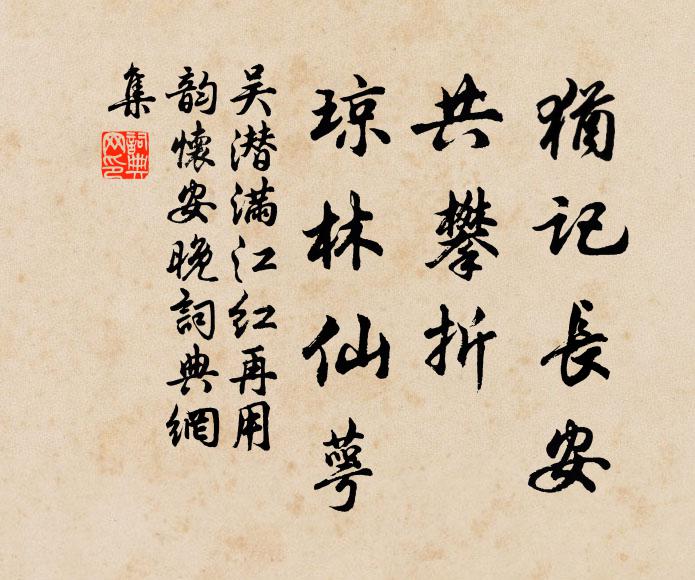 猶記長安
共攀折
琼林仙萼
吴潜满江红再用
韵懷安晚詞典網
集
詞典
网印